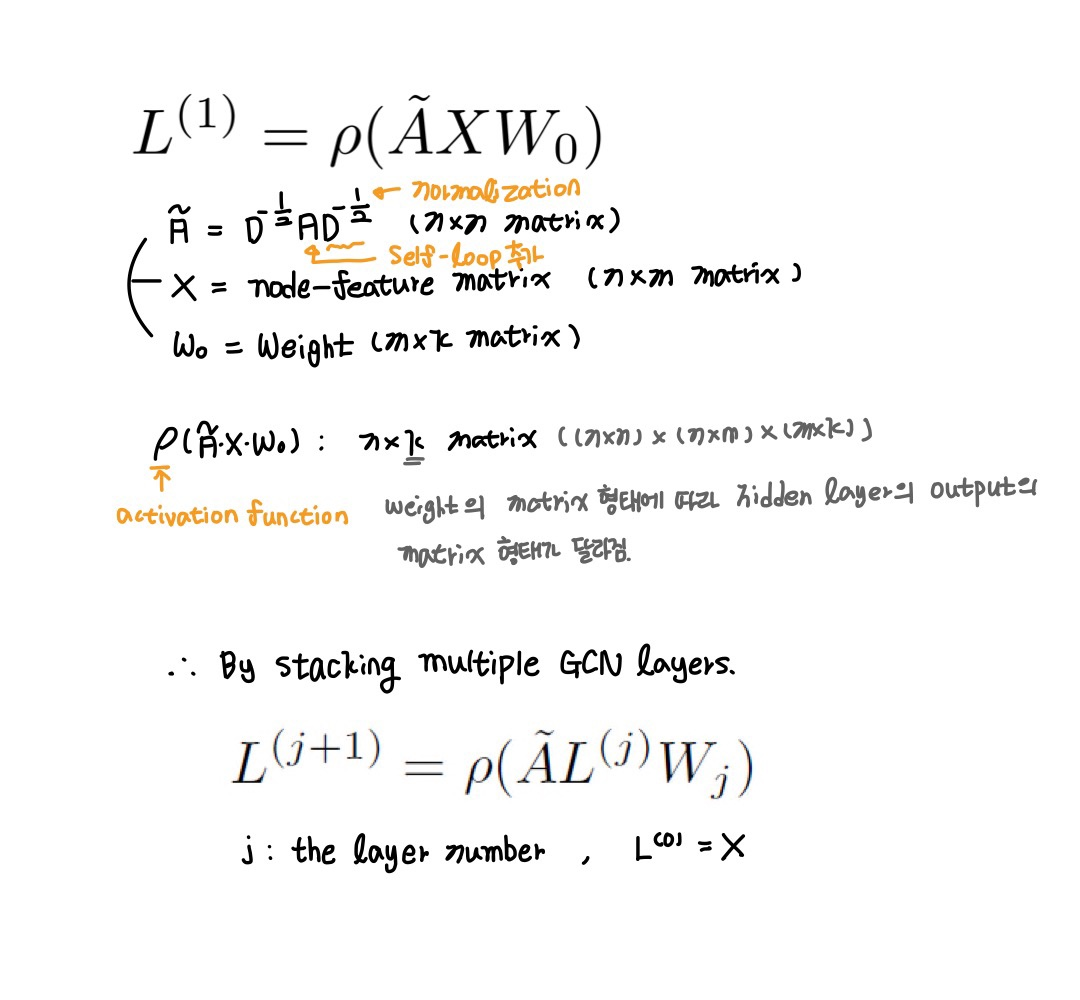 L^(1) = ρ(ÃXW₀)
Ã = D^-1/2 A D^-1/2 (n×n matrix) ← normalization
Self-loop 추가
X = node-feature matrix (n×m matrix)
W₀ = Weight (m×k matrix)
ρ(Ã·X·W₀) : n×k matrix ((n×n)×(n×m)×(m×k))
activation function
weight의 matrix 형태에 따라 hidden layer의 output의
matrix 형태가 달라짐.
∴ By stacking multiple GCN layers.
L^(j+1) = ρ(ÃL^(j)W_j)
j : the layer number , L^(0) = X